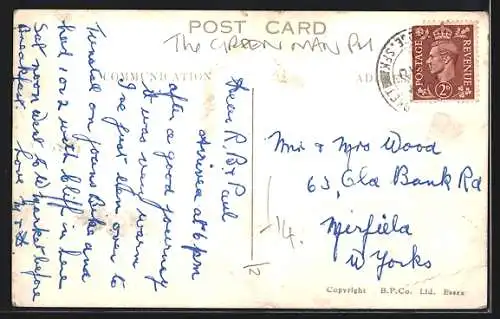 POST CARD
The GREEN MAN PH
COMMUNICATION
POSTAGE REVENUE
2D
Dear R, B & Paul
Arrived at 6 pm
after a good journey
it was very warm
I've just been over to
Tunstal on Joans Bike and
had 1 or 2 with Cliff in here
Sat noon went to W market before
Breakfast. Love
Mr & Mrs Wood
63, Old Bank Rd
Mirfield
W Yorks
-14.
12
Copyright B.P.Co. Ltd. Essex